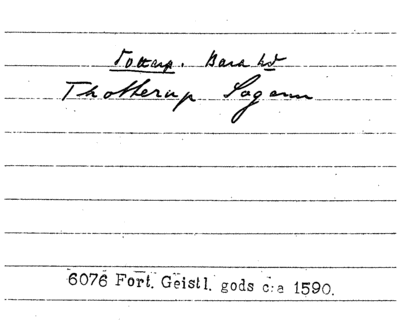 Tottarp. Bara hd
Thotterup Sogenn
6076 Fort. Geistl. gods c:a 1590.